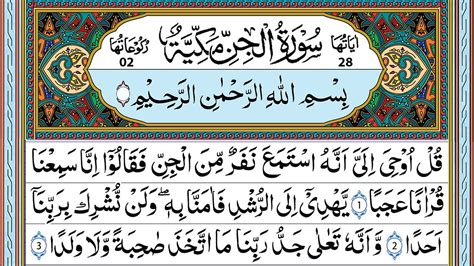 اٰيَاتُهَا 28 سُوْرَةُ الْجِنِّ مَكِّيَّةٌ رُكُوْعَاتُهَا 02
بِسْمِ اللهِ الرَّحْمٰنِ الرَّحِيْمِ
قُلْ اُوْحِيَ اِلَيَّ اَنَّهُ اسْتَمَعَ نَفَرٌ مِّنَ الْجِنِّ فَقَالُوْٓا اِنَّا سَمِعْنَا
قُرْاٰنًا عَجَبًا 1 يَّهْدِيْٓ اِلَى الرُّشْدِ فَاٰمَنَّا بِهٖ ۖ وَلَنْ نُّشْرِكَ بِرَبِّنَآ
اَحَدًا 2 وَّاَنَّهٗ تَعٰلٰى جَدُّ رَبِّنَا مَا اتَّخَذَ صَاحِبَةً وَّلَا وَلَدًا 3